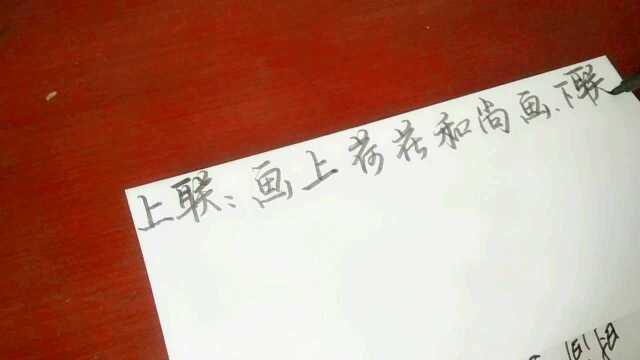 上联、画上荷花和尚画、下联